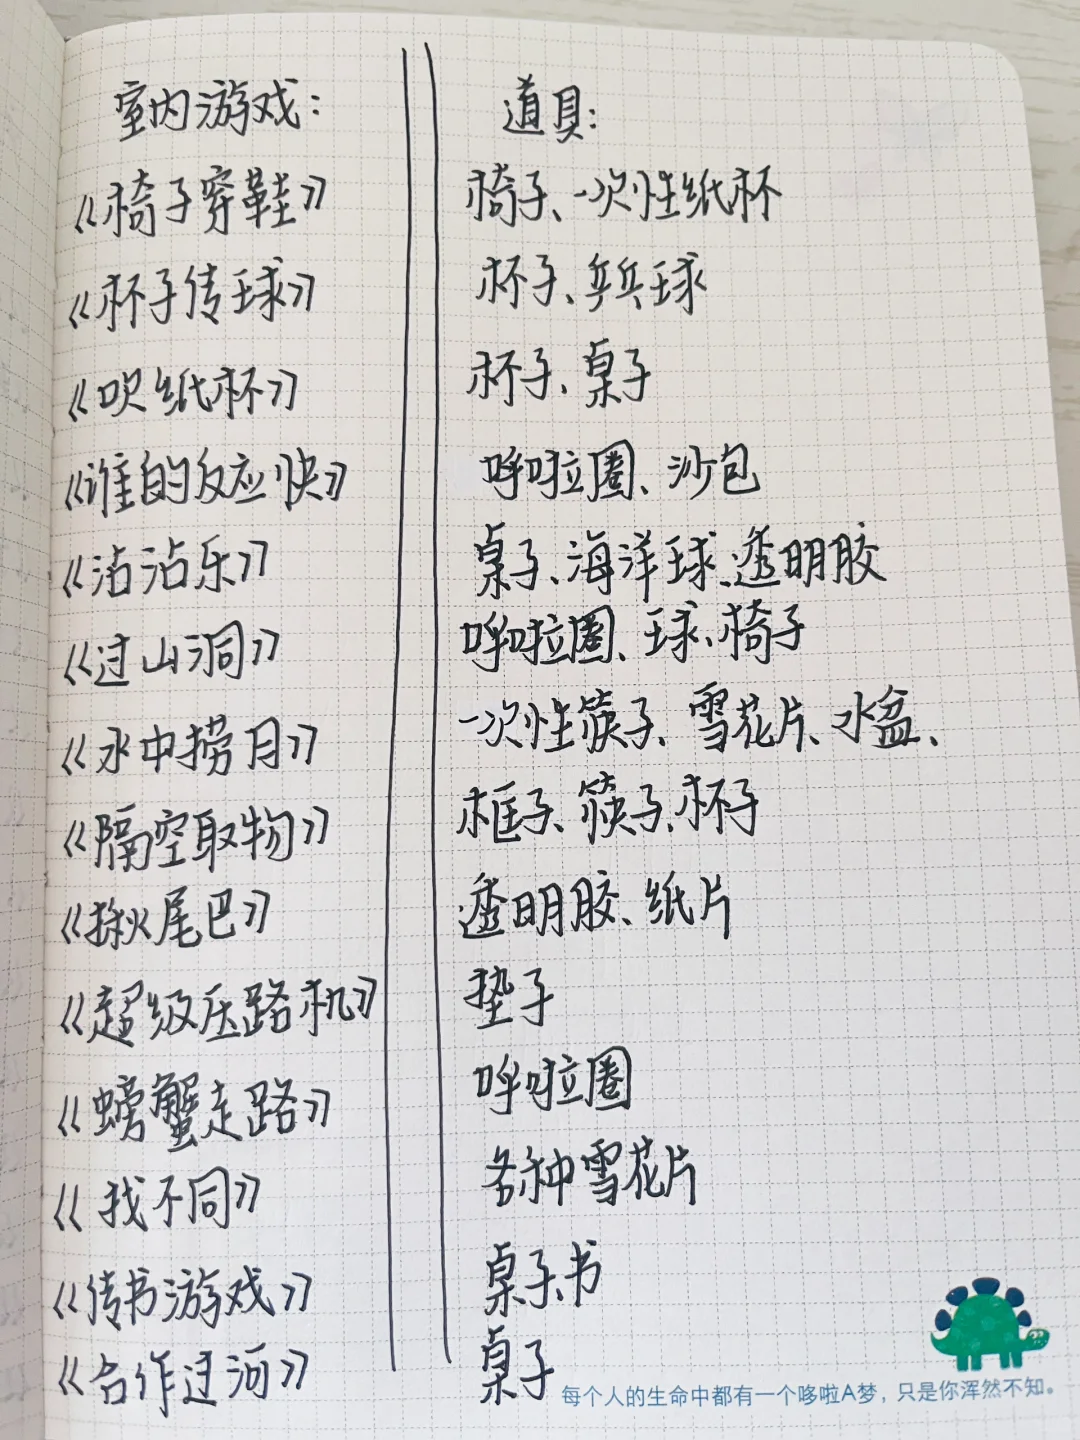 室内游戏： 道具：
《椅子穿鞋》 椅子、一次性纸杯
《杯子传球》 杯子、乒乓球
《吹纸杯》 杯子、桌子
《谁的反应快》 呼啦圈、沙包
《沾沾乐》 桌子、海洋球、透明胶
《过山洞》 呼啦圈、球、椅子
《水中捞月》 一次性筷子、雪花片、水盆、
《隔空取物》 框子、筷子、杯子
《揪尾巴》 透明胶、纸片
《超级压路机》 垫子
《螃蟹走路》 呼啦圈
《找不同》 各种雪花片
《传书游戏》 桌子、书
《合作过河》 桌子
每个人的生命中都有一个哆啦A梦，只是你浑然不知。